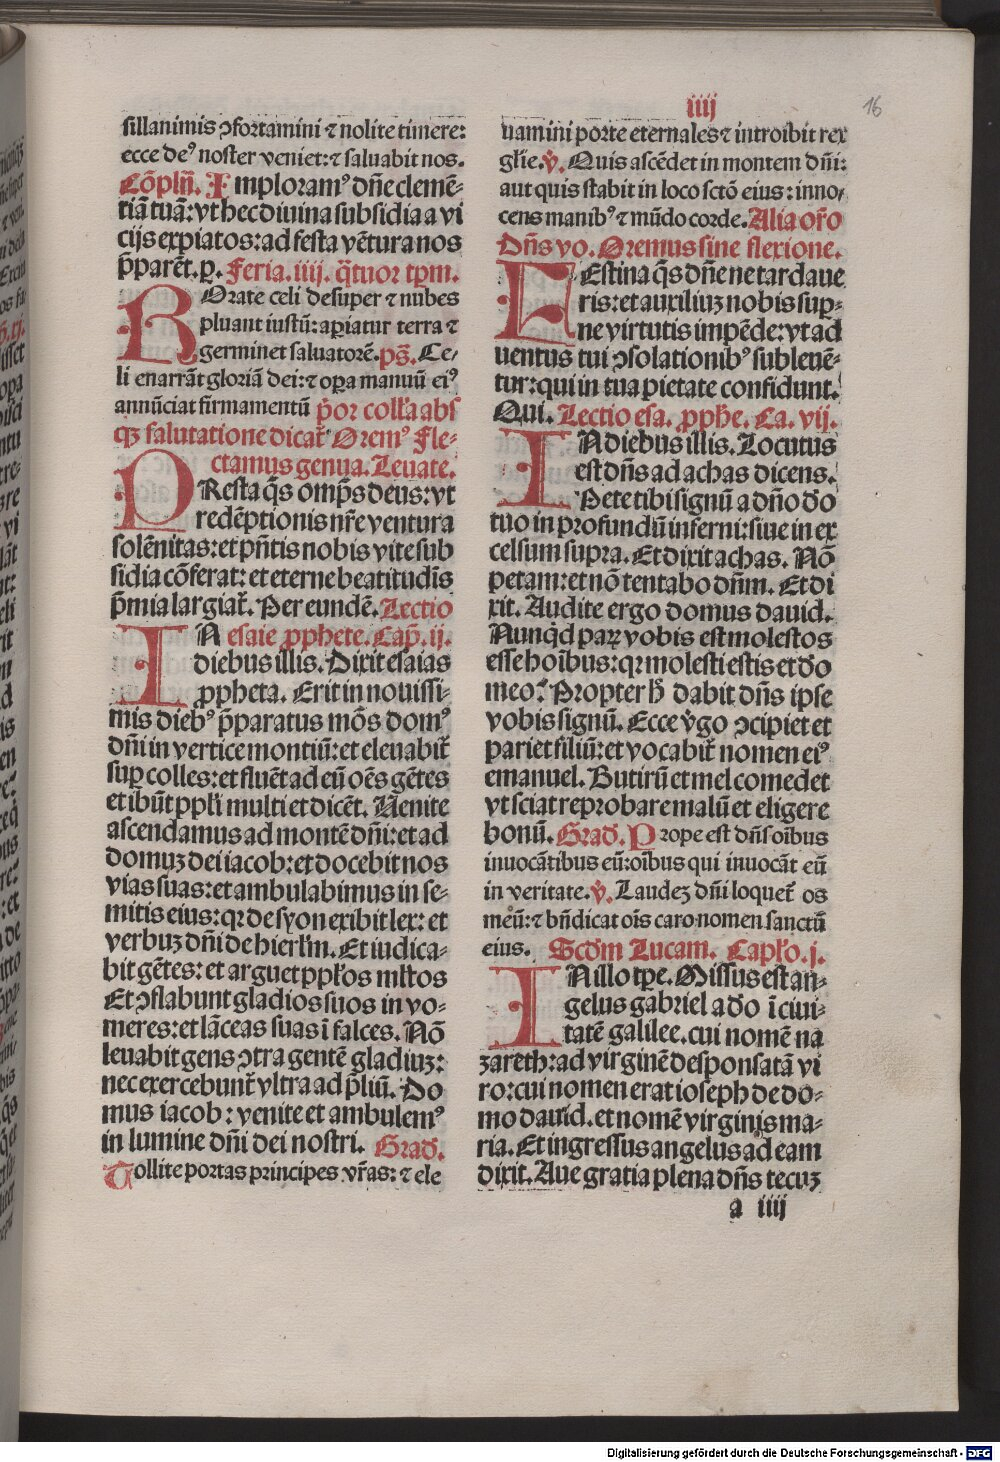 iiij
16
sillanimis ꝯfortamini ⁊ nolite timere:
ecce deꝰ noster veniet:⁊ saluabit nos.
Cōpłn̄. Imploramꝰ dn̄e clemē-
tiā tuā: vt hec diuina subsidia a vi
cijs expiatos: ad festa vētura nos
p̄parēt. ꝑ. Feria. iiij. q̄tuor tꝑm.
ROrate celi desuper ⁊ nubes
pluant iustū: aꝑiatur terra ⁊
germinet saluatorē. ps̄. Ce-
li enarrāt gloriā dei:⁊ oꝑa manuū eiꝰ
annūciat firmamentū p̄or coll'a abs
qꝫ salutatione dicat᷑ Oremꝰ Fle-
ctamus genua. Leuate.
PResta q̄s omp̄s deus: vt
redēptionis nr̄e ventura
solēnitas: et pn̄tis nobis vite sub
sidia cōferat: et eterne beatitudīs
p̄mia largiat᷑. Per eundē. Lectio
IN esaie ꝓphete. Cap̄. ij.
diebus illis. Dixit esaias
ꝓpheta. Erit in nouissi-
mis diebꝰ p̄paratus mōs domꝰ
dn̄i in vertice montiū: et eleuabit᷑
suꝑ colles: et fluēt ad eū oēs gētes
et ibūt ppl'i multi et dicēt. Uenite
ascendamus ad montē dn̄i: et ad
domuꝫ dei iacob: et docebit nos
vias suas: et ambulabimus in se-
mitis eius: qꝛ de syon exibit lex: et
verbuꝫ dn̄i de hierl'm. Et iudica-
bit gētes: et arguet ppl'os ml'tos
Et ꝯflabunt gladios suos in vo-
meres: et lāceas suas ī falces. Nō
leuabit gens ꝯtra gentē gladiuꝫ:
nec exercebunt᷑ vltra ad p̄liū. Do
mus iacob: venite et ambulemꝰ
in lumine dn̄i dei nostri. Grad̄.
Tollite portas principes vr̄as: ⁊ ele
uamini porte eternales ⁊ introibit rex
gl'ie. v̄. Quis ascēdet in montem dn̄i:
aut quis stabit in loco sctō eius: inno-
cens manibꝰ ⁊ mūdo corde. Alia or̄o
Dn̄s vo. Oremus sine flexione.
FEstina q̄s dn̄e ne tardaue
ris: et auxiliuꝫ nobis suꝑ-
ne virtutis impēde: vt ad
uentus tui ꝯsolationibꝰ subleuē-
tur: qui in tua pietate confidunt.
Qui. Lectio esa. ꝓphe. Ca. vij.
IN diebus illis. Locutus
est dn̄s ad achas dicens.
Pete tibi signū a dn̄o do
tuo in profundū inferni: siue in ex
celsum supra. Et dixit achas. Nō
petam: et nō tentabo dn̄m. Et di
xit. Audite ergo domus dauid.
Nunqd̄ paꝝ vobis est molestos
esse hoībus: qꝛ molesti estis et do
meo? Propter h̄ dabit dn̄s ipse
vobis signū. Ecce v̄go ꝯcipiet et
pariet filiū: et vocabit᷑ nomen eiꝰ
emanuel. Butirū et mel comedet
vt sciat reprobare malū et eligere
bonū. Grad̄. Prope est dn̄s oībus
inuocātibus eū: oībus qui inuocāt eū
in veritate. v̄. Laudeꝫ dn̄i loquet᷑ os
meū: ⁊ bn̄dicat oīs caro nomen sanctū
eius. Scd̄m Lucam. Capl'o. j.
IN illo tꝑe. Missus est an-
gelus gabriel a do ī ciui-
tatē galilee. cui nomē na
zareth: ad virginē desponsatā vi
ro: cui nomen erat ioseph de do-
mo dauid. et nomē virginis ma-
ria. Et ingressus angelus ad eam
dixit. Aue gratia plena dn̄s tecuꝫ
a iiij
Digitalisierung gefördert durch die Deutsche Forschungsgemeinschaft - DFG